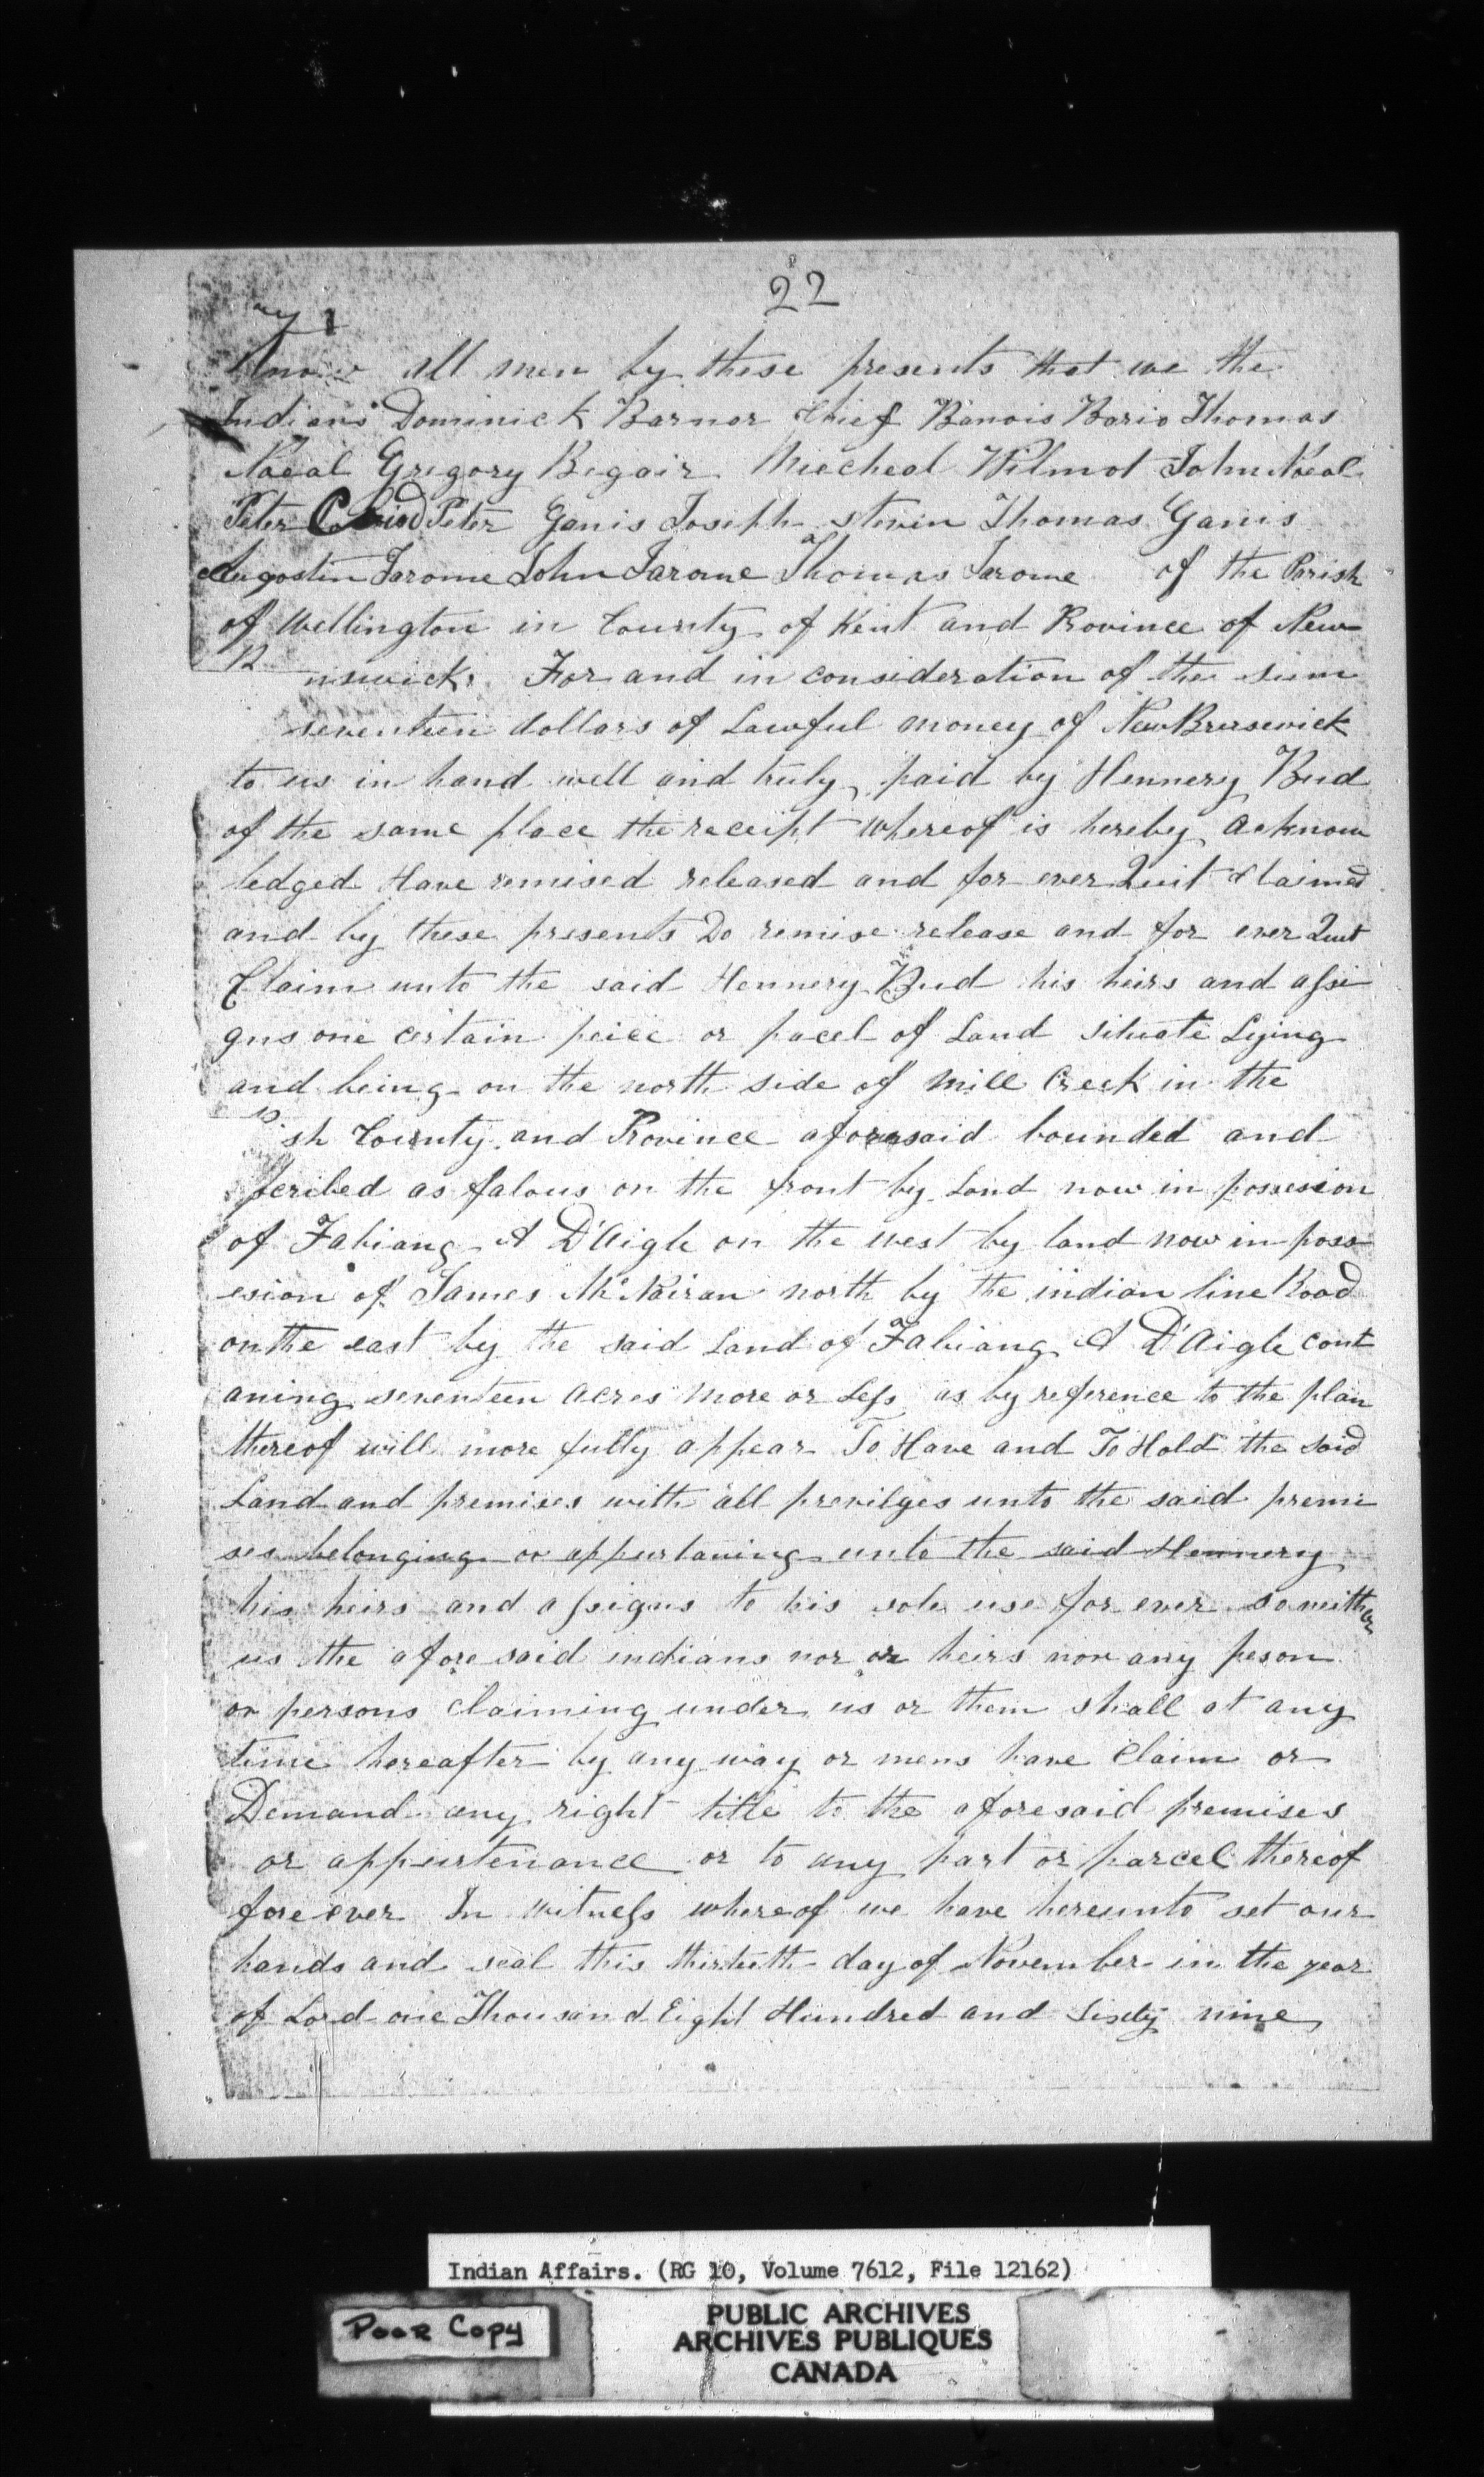 22
Know all men by these presents that we the
Indians Dominick Barnor Chief Banois Bario Thomas
Naeal Gregory Begair Miecheal Wilmot John Neal
Peter Peter Ganis Joseph stevin Thomas Ganis
Augostin Jarome John Jarome Thomas Jarome of the Parish
of Wellington in County of Kent and Province of New
nswick For and in consideration of the sum
seventeen dollars of Lawful money of New Brusewick
to us in hand well and truly paid by Hennery Bud
of the same place the receipt whereof is hereby acknow
ledged Have remised released and for ever Quit Claimed
and by these presents Do remise release and for ever Quit
Claim unto the said Hennery Bud his heirs and assi
gns one certain peice or pacel of Land situate Lying
and being on the north side of Mill Creek in the
sh County and Province aforesaid bounded and
scribed as falous on the front by Land now in possesion
of Fabiang A D'Aigle on the west by land now in poss
esion of James McNairan north by the indian line Road
on the east by the said Land of Fabiang A D'Aigle cont
aning seventeen acres more or Less as by reference to the plan
thereof will more fully appear To Have and To Hold the said
Land and premises with all previlges unto the said premi
ses belonging or appurtaning unto the said Hennery
his heirs and assigns to his sole use for ever so neither
us the afore said indians nor or heirs nor any peson
or persons claiming under us or them shall at any
time hereafter by any way or mens have Claim or
Demand any right title to the aforesaid premises
or appurtenance or to any part or parcel thereof
fore ever In witness whereof we have hereunto set our
hands and seal this thirtieth day of November in the year
of Lord one Thousand Eight Hundred and Sixty nine
Indian Affairs. (RG 10, Volume 7612, File 12162)
Poor Copy
PUBLIC ARCHIVES
ARCHIVES PUBLIQUES
CANADA